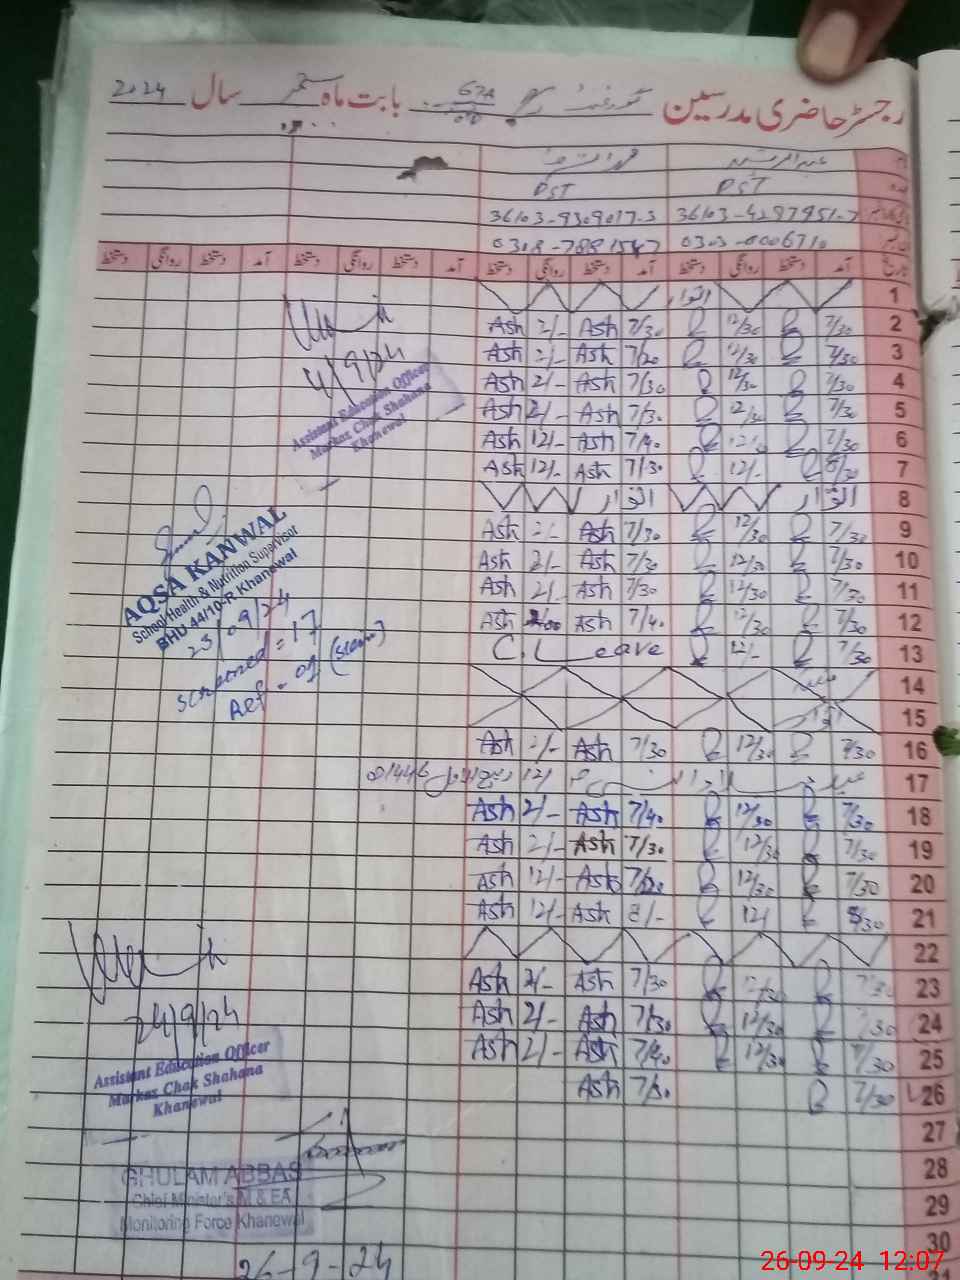 رجسٹر حاضری مدرسین بابت ماہ ستمبر سال 2024
PST PST
36103-9309017-3 36103-4287951-7
0308-7881547 0303-0006710
دستخط روانگی دستخط آمد دستخط روانگی دستخط آمد دستخط روانگی دستخط آمد دستخط روانگی دستخط آمد تاریخ
اتوار 1
Ash 2/- Ash 7/30 12/30 7/30 2
Ash 2/- Ash 7/20 12/30 7/30 3
Ash 2/- Ash 7/30 12/30 7/30 4
Ash 2/- Ash 7/30 12/30 7/30 5
Ash 12/- Ash 7/40 7/30 6
Ash 12/- Ash 7/30 12/- 7
4/9/24
Assistant Education Officer
Markaz Chak Shahana
Khanewal
اتوار اتوار 8
Ash 2/- Ash 7/30 12/30 7/30 9
Ash 2/- Ash 7/30 12/30 7/30 10
Ash 2/- Ash 7/30 12/30 7/30 11
Ash Ash 7/40 12/30 7/30 12
C. Leave 12/- 7/30 13
AQSA KANWAL
School Health & Nutrition Supervisor
BHU 44/10-R Khanewal
23/09/24
Screened = 17
Ref - 01
14
15
Ash 2/- Ash 7/30 12/30 7/30 16
12 ربیع الاول 1446 17
Ash 2/- Ash 7/40 12/30 7/30 18
Ash 2/- Ash 7/30 12/30 7/30 19
Ash 12/- Ash 12/30 7/30 20
Ash 12/- Ash 8/- 12/ 8/30 21
22
Ash 2/- Ash 7/30 12/30 7/30 23
Ash 2/- Ash 7/30 12/30 7/30 24
Ash 2/- Ash 7/40 12/30 7/30 25
Ash 7/30 7/30 26
24/9/24
Assistant Education Officer
Markaz Chak Shahana
Khanewal
27
28
29
30
GHULAM ABBAS
Chief Minister's M & EA
Monitoring Force Khanewal
26-9-24
26-09-24 12:07